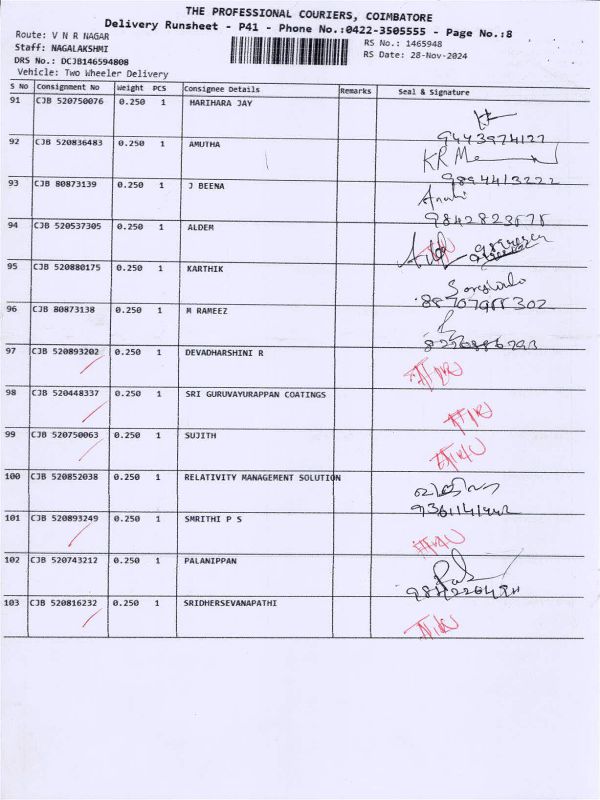 THE PROFESSIONAL COURIERS, COIMBATORE
Delivery Runsheet - P41 - Phone No.:0422-3505555 - Page No.:8
Route: V N R NAGAR
RS No.: 1465948
Staff: NAGALAKSHMI
RS Date: 28-Nov-2024
DRS No.: DCJB146594808
Vehicle: Two Wheeler Delivery
S No Consignment No Weight PCS Consignee Details Remarks Seal & Signature
91 CJB 520750076 0.250 1 HARIHARA JAY
9443974127
92 CJB 520836483 0.250 1 AMUTHA
9894413222
93 CJB 80873139 0.250 1 J BEENA
94 CJB 520537305 0.250 1 ALDEM
95 CJB 520880175 0.250 1 KARTHIK
96 CJB 80873138 0.250 1 M RAMEEZ
97 CJB 520893202 0.250 1 DEVADHARSHINI R
98 CJB 520448337 0.250 1 SRI GURUVAYURAPPAN COATINGS
99 CJB 520750063 0.250 1 SUJITH
100 CJB 520852038 0.250 1 RELATIVITY MANAGEMENT SOLUTION
101 CJB 520893249 0.250 1 SMRITHI P S
102 CJB 520743212 0.250 1 PALANIPPAN
103 CJB 520816232 0.250 1 SRIDHERSEVANAPATHI